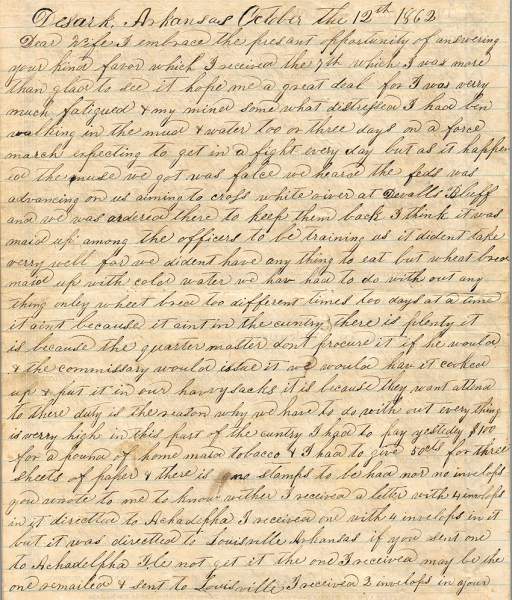 Desark, Arkansas October the 12th 1862
Dear Wife I embrace the presant opportunity of answering
your kind favor which I received the 7th which I was more
than glad to see it hope me a great deal for I was verry
much fatigued & my mind some what distressed I had ben
walking in the mud & water too or three days on a force
march inspecting to get in a fight every day but as it happen
ed the muse we got was falce we heard the feds was
advancing on us aiming to cross white river at Devalls Bluff
and we was ordered there to keep them back I think it was
maid up among the officers to be training us it dident take
verry well for we dident have any thing to eat but wheat bread
maid up with cold water we hav had to do with out any
thing onley wheet bred too different times too days at a time
it aint because it aint in the cuntry there is plenty it
is because the quarter master dont procure it if he would
& the commissary would issue it we would hav it cooked
up & put it in our havrysacks it is because they want attend
to there duty is the reason why we have to do with out every thing
is verry high in this part of the cuntry I had to pay yestedy $1.00
for a pound of home maid tobacco & I had to give 50cts for three
sheets of paper & there is no stamps to be had nor no invelops
you wrote to me to know wither I received a letter with 4 invelops
in it directed to Achadelpha I received on with 4 invelops in it
but it was directed to Louisville Arkansas if you sent one
to Achadelpha I do not get it the one I received may be the
one remailed & sent to Louisville I received 2 invelops in your